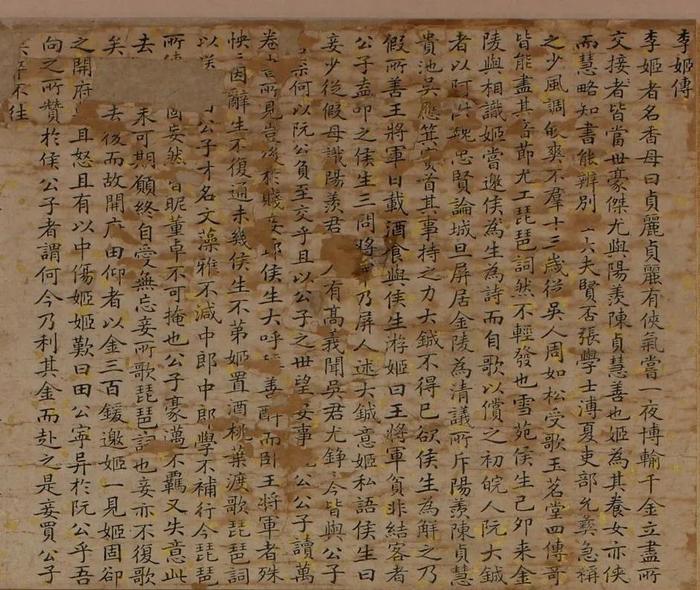 李姬傳
李姬者名香母曰貞麗貞麗有俠氣嘗一夜博輸千金立盡所
交接者皆當世豪傑尤與陽羨陳貞慧善也姬為其養女亦俠
而慧略知書能辨別士大夫賢否張學士溥夏吏部允彝急稱
之少風調皎爽不羣十三歲從吳人周如松受歌玉茗堂四傳奇
皆能盡其音節尤工琵琶詞然不輕發也雪苑侯生己卯来金
陵與相識姬嘗邀侯為生為詩而自歌以償之初皖人阮大鋮
者以阿附魏忠賢論城旦屏居金陵為清議所斥陽羨陳貞慧
貴池吳應箕實首其事持之力大鋮不得已欲侯生為解之乃
假所善王將軍日載酒食與侯生游姬曰王將軍貧非結客者
公子盍叩之侯生三問將軍乃屏人述大鋮意姬私語侯生曰
妾少從假母識陽羨君 人有高義聞吳君尤錚 今皆與公子
何以阮公負至交乎且以公子之世望安事 公公子讀萬
卷 所見豈後於賤妾 侯生大呼 善酧而臥王將軍者殊
怏 因辭生不復通未幾侯生不第姬置酒桃葉渡歌琵琶詞
以 公子才名文藻雅不減中郎中郎學不補行今琵琶
所 固妄然 昵董卓不可掩也公子豪邁不羈又失意此
去 未可期願終自愛無忘妾所歌琵琶詞也妾亦不復歌
矣 去後而故開府田仰者以金三百鍰邀姬一見姬固卻
之開府 且怒且有以中傷姬姬歎曰田公寧异於阮公乎吾
向之所贊於侯公子者謂何今乃利其金而赴之是妾賣公子
不往